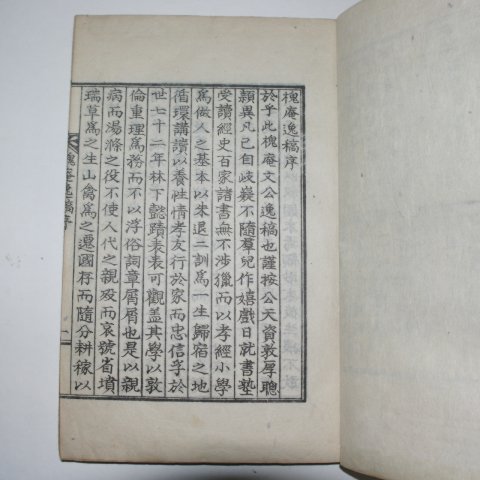 槐庵逸稿序
於乎此槐庵文公逸稿也謹按公天資敦厚聰
穎異凡已自岐嶷不隨羣兒作嬉戲日就書塾
受讀經史百家諸書無不涉獵而以孝經小學
爲做人之基本以朱退二訓爲一生歸宿之地
循環講讀以養性情孝友行於家而忠信孚於
世七十二年林下懿蹟表表可觀盖其學以敦
倫重理爲務而不以浮俗詞章屑屑也是以親
病而湯滌之役不使人代之親歿而哀號省墳
瑞草爲之生山禽爲之遷國存而隨分耕稼以
槐庵逸稿序
一